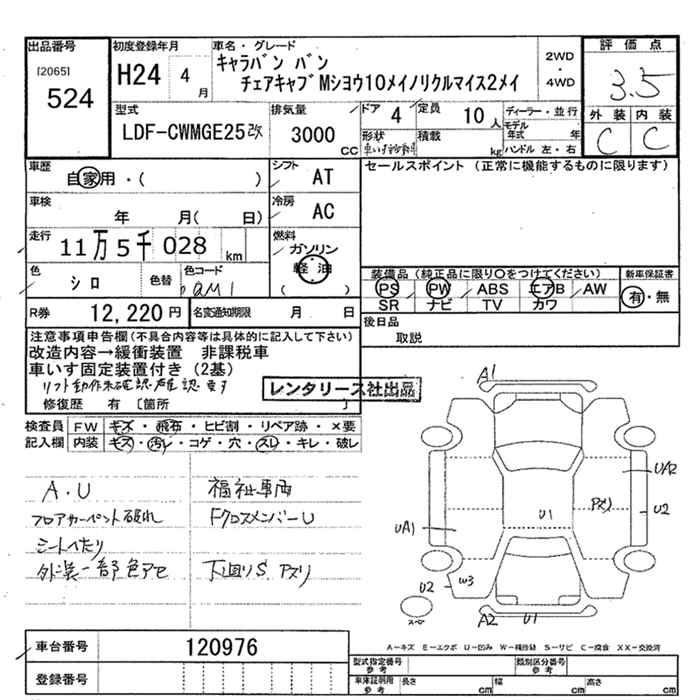 出品番号
[2065]
524
初度登録年月
H24 4月
車名・グレード
キャラバン バン
チェアキャブMショウ10メイノリクルマイス2メイ
2WD
・
4WD
評価点
3.5
外装 内装
C C
型式
LDF-CWMGE25改
排気量
3000 CC
ドア 4
定員 10人
形状
積載 kg
ディーラー・並行
モデル年式 年
ハンドル 左・右
車歴
自家用・( )
シフト AT
車検
年 月( 日)
冷房 AC
走行
11万5千028 km
燃料
ガソリン
軽油
( )
色 シロ
色替
色コード
R券 12,220円
名変通知期限 月 日
セールスポイント(正常に機能するものに限ります)
装備品(純正品に限り○をつけてください)
PS PW ABS エアB AW
SR ナビ TV カワ
新車保証書
有・無
後日品
取説
注意事項申告欄(不具合内容等は具体的に記入して下さい)
改造内容→緩衝装置 非課税車
車いす固定装置付き(2基)
リフト動作未確認 確認要す
レンタリース社出品
修復歴 有 〔箇所 〕
検査員記入欄
FW キズ・飛石・ヒビ割・リペア跡・×要
内装 キズ・汚レ・コゲ・穴・スレ・キレ・破レ
A・U
フロアカーペント破れ
シートへたり
外装一部色アセ
福祉車両
FクロスメンバーU
下回りS アズリ
A1
UA2
U2
アズリ
U1
UA1
U2
W3
A2
U1
スペア
A-キズ E-エクボ U-凹み W-補修跡 S-サビ C-腐食 XX-交換済
車台番号 120976
登録番号
型式指定番号
参考
類別区分番号
参考
車庫証明用
参考
長さ cm
幅 cm
高さ cm